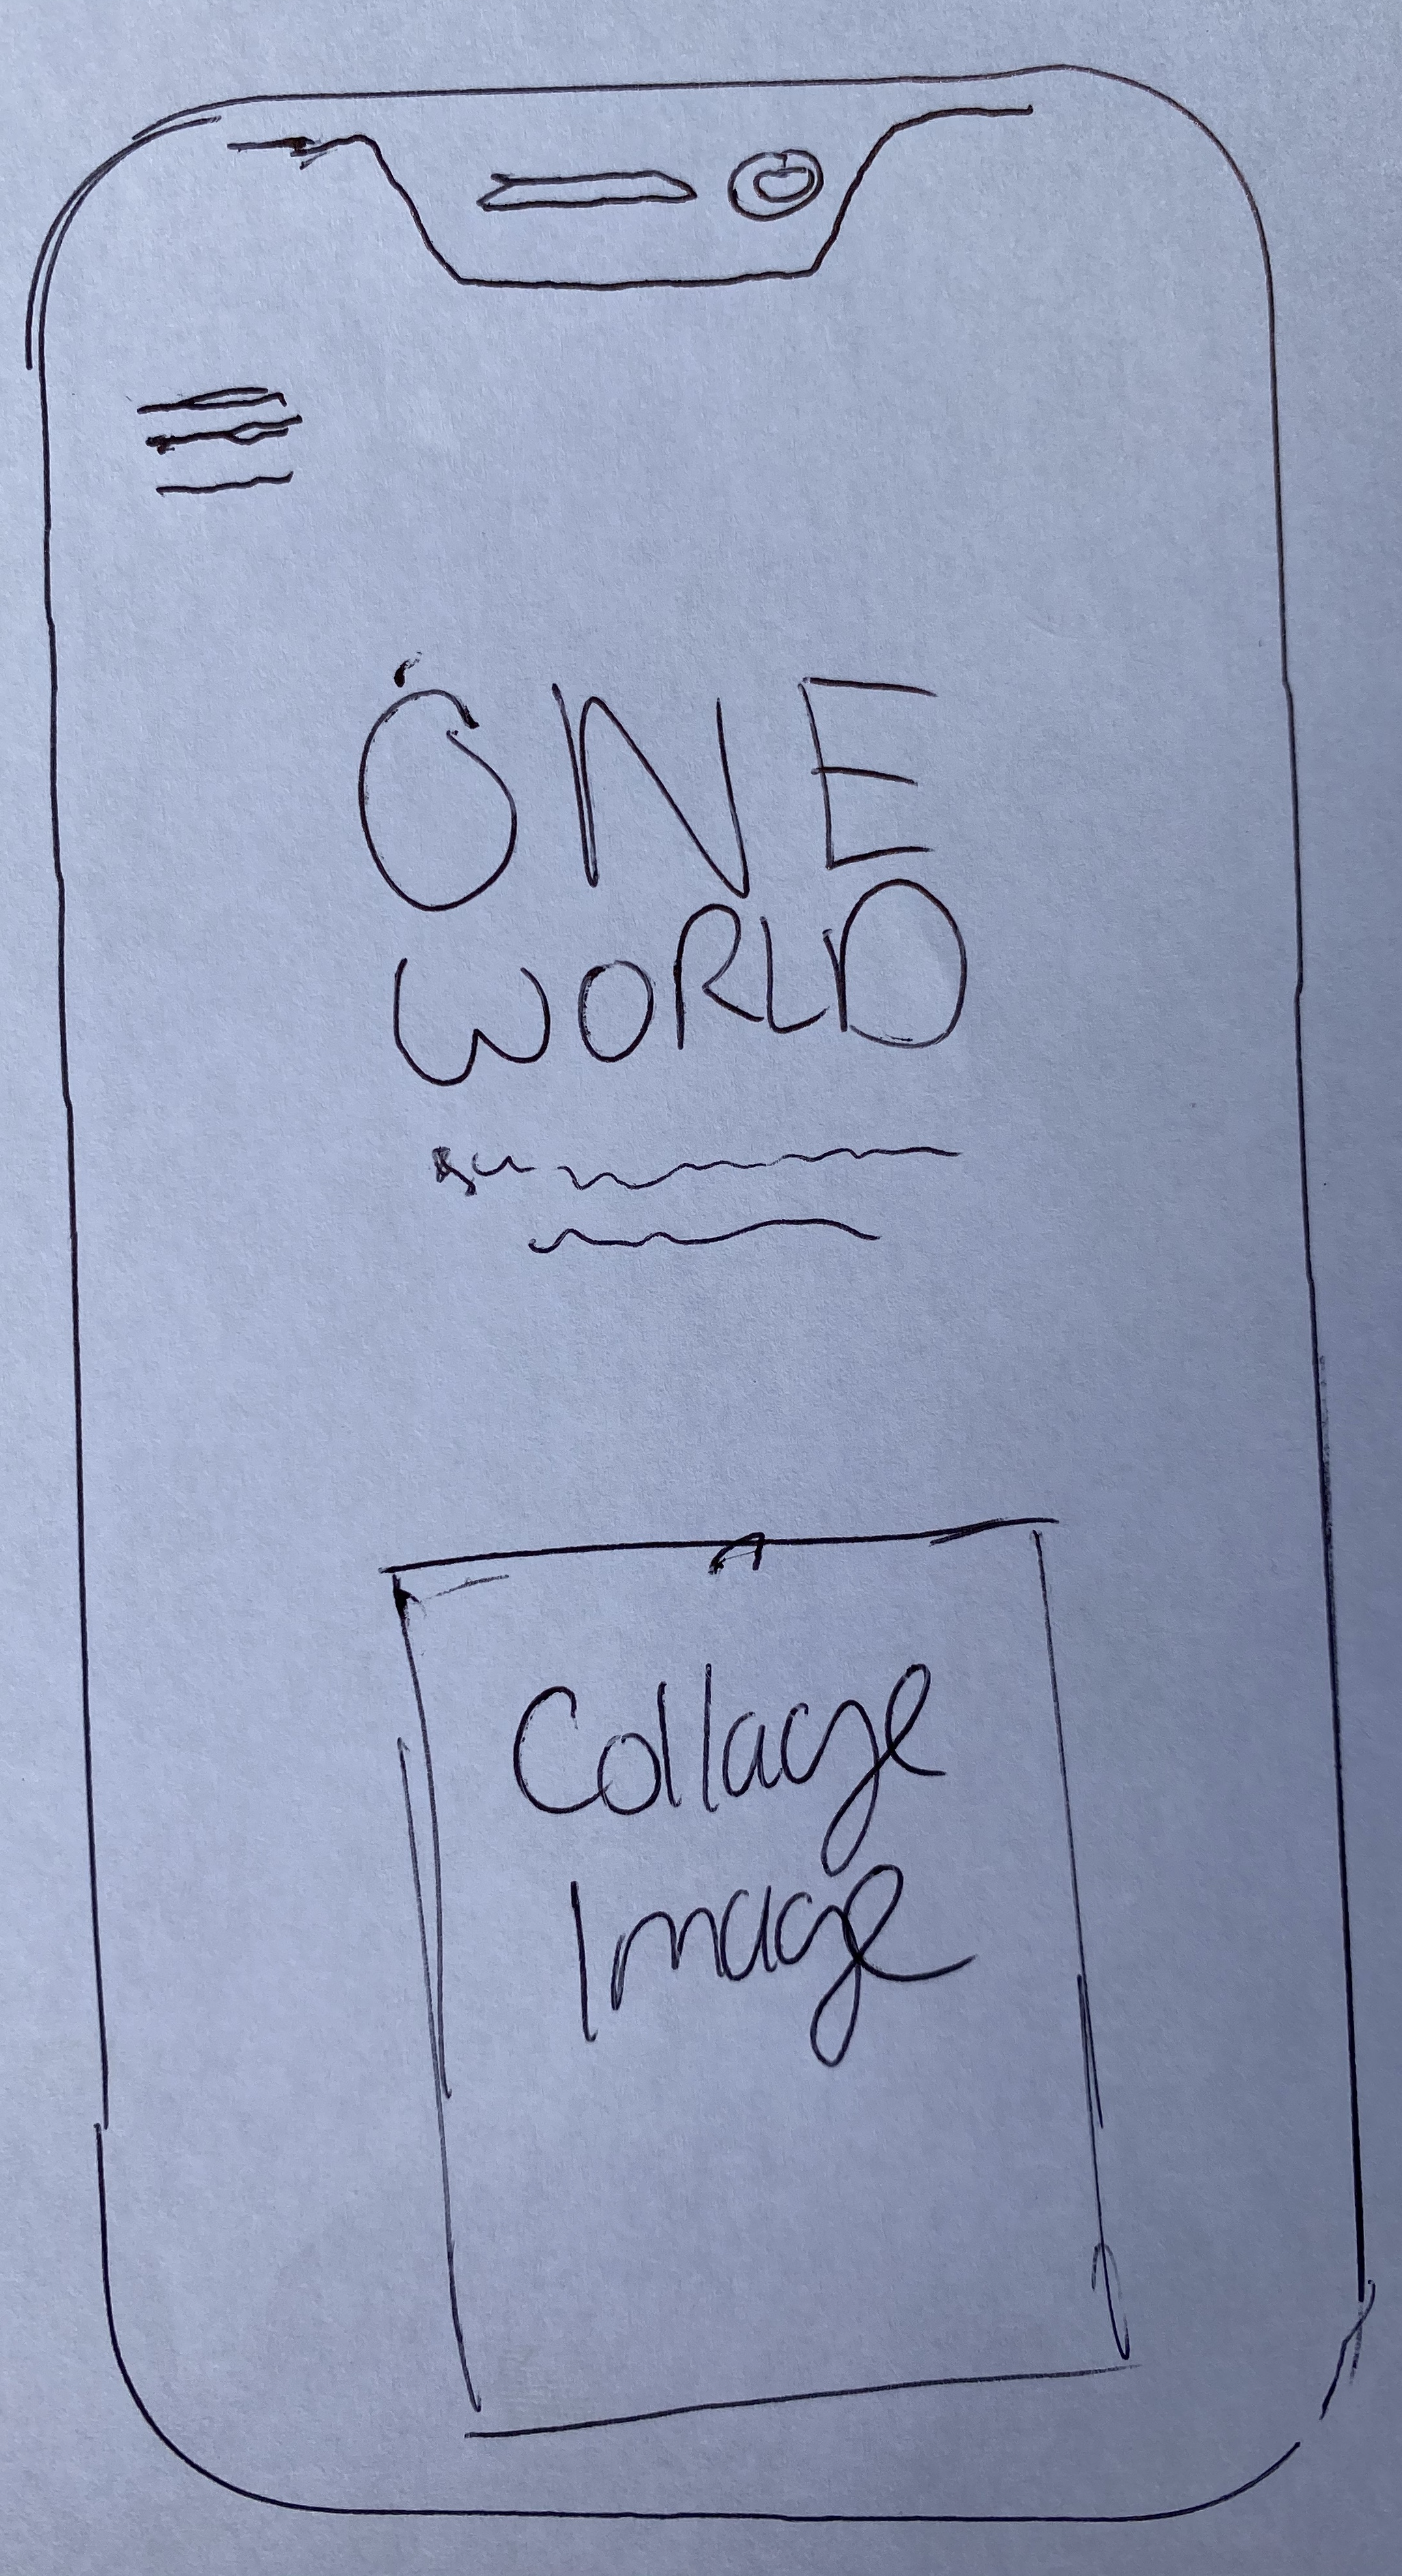 ONE
WORLD
Collage
Image